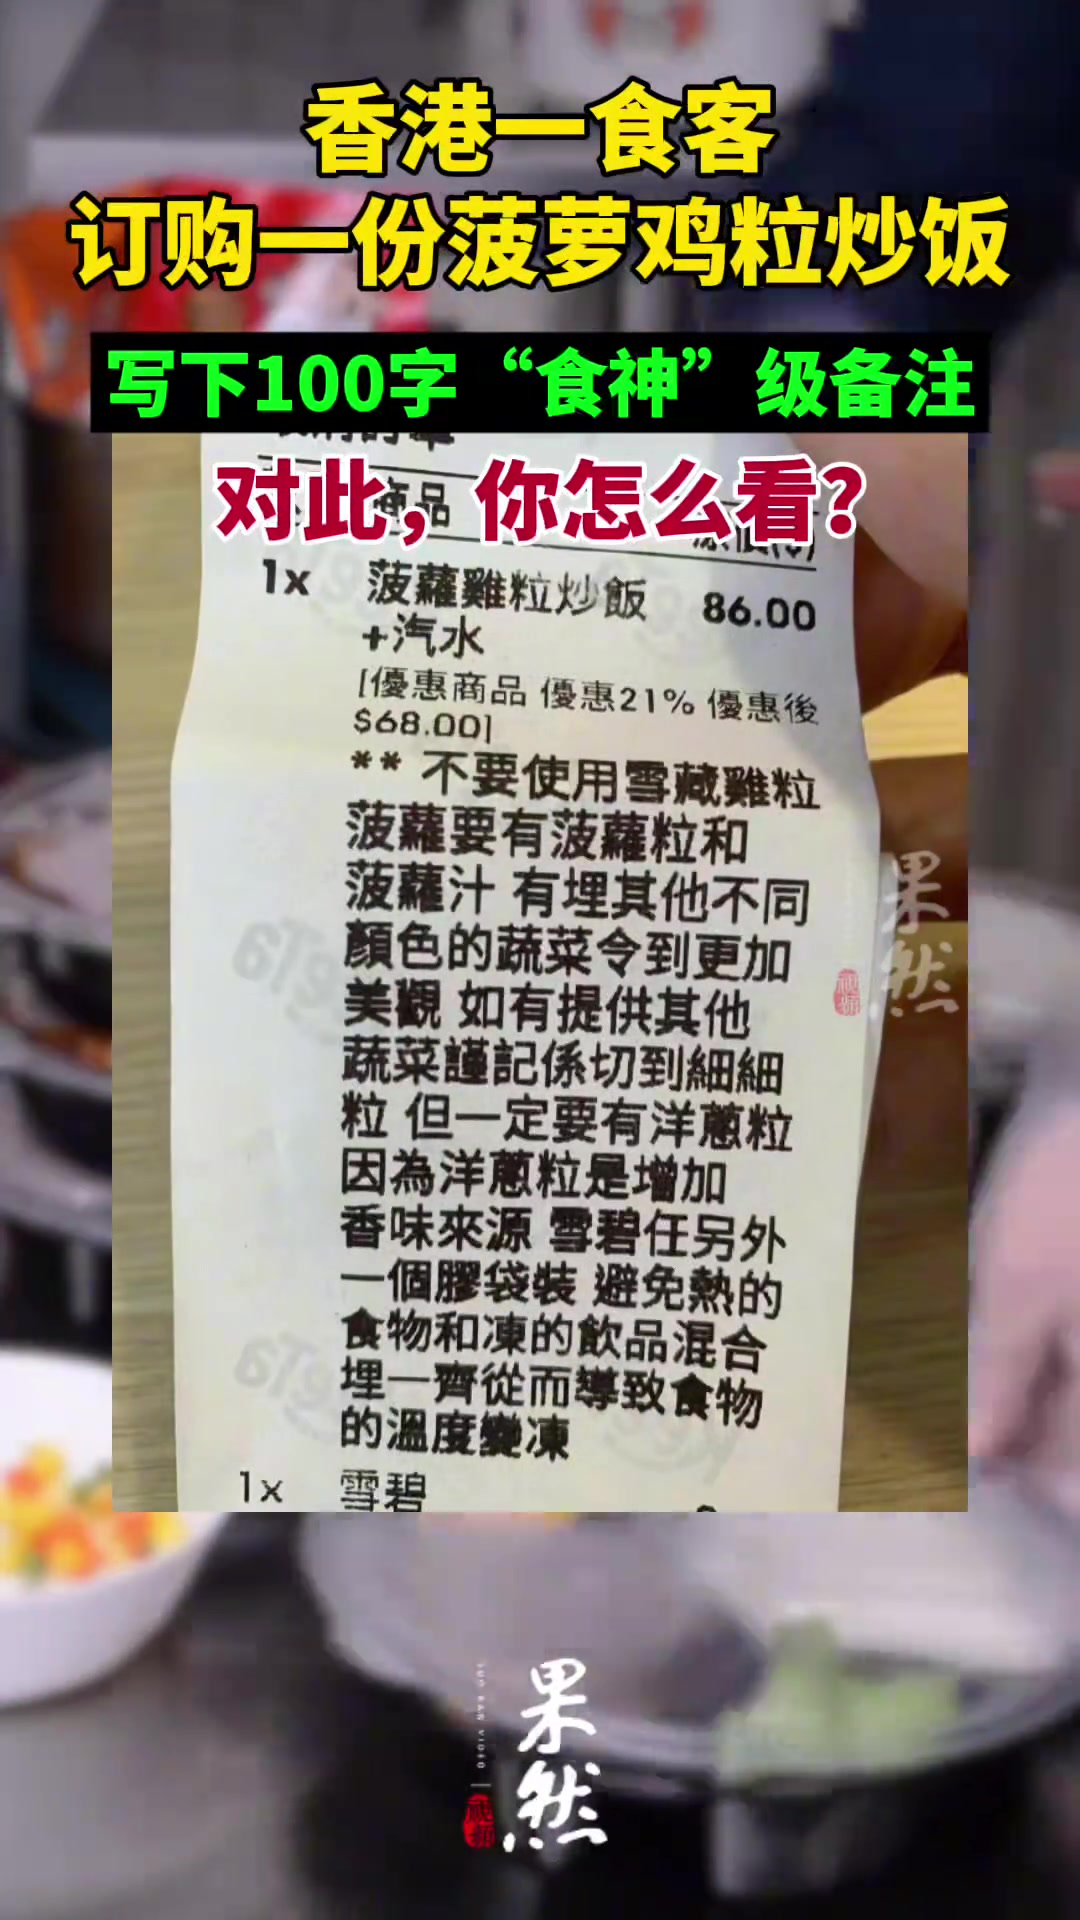 香港一食客
订购一份菠萝鸡粒炒饭
写下100字“食神”级备注
对此，你怎么看？
商品
1x 菠蘿雞粒炒飯 86.00
+汽水
[優惠商品 優惠21% 優惠後
$68.00]
** 不要使用雪藏雞粒
菠蘿要有菠蘿粒和
菠蘿汁 有埋其他不同
顏色的蔬菜令到更加
美觀 如有提供其他
蔬菜謹記係切到細細
粒 但一定要有洋蔥粒
因為洋蔥粒是增加
香味來源 雪碧任另外
一個膠袋裝 避免熱的
食物和凍的飲品混合
埋一齊從而導致食物
的溫度變凍
1x 雪碧
果然
视频
果然
视频